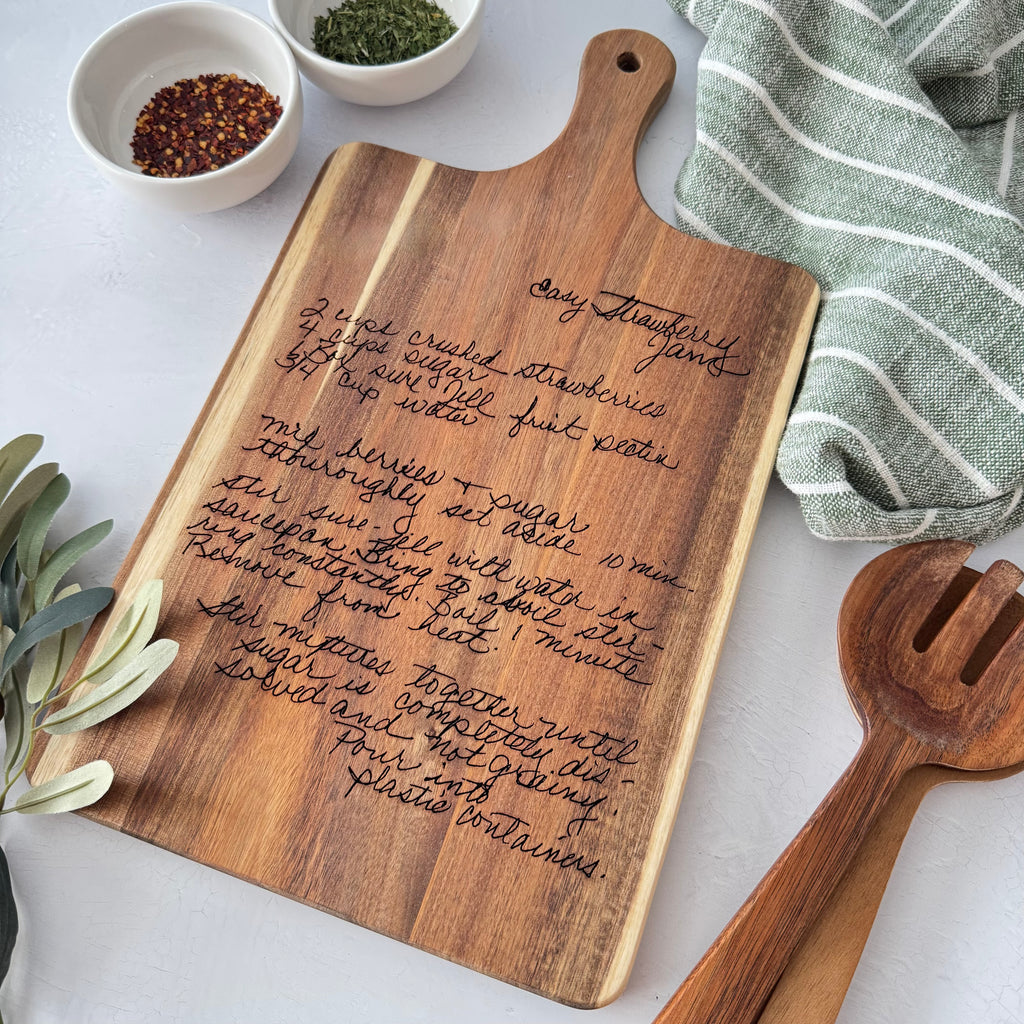 Easy Strawberry
Jam
2 cups crushed strawberries
4 cups sugar
1 box sure Jell fruit pectin
3/4 cup water
mix berries + sugar
thouroughly set aside 10 min.
Stir sure-Jell with water in
saucepan. Bring to aboil stir-
ring constantly. Boil 1 minute
Remove from heat.
Stir mixtures together until
sugar is completely dis-
solved and not grainy.
Pour into
plastic containers.